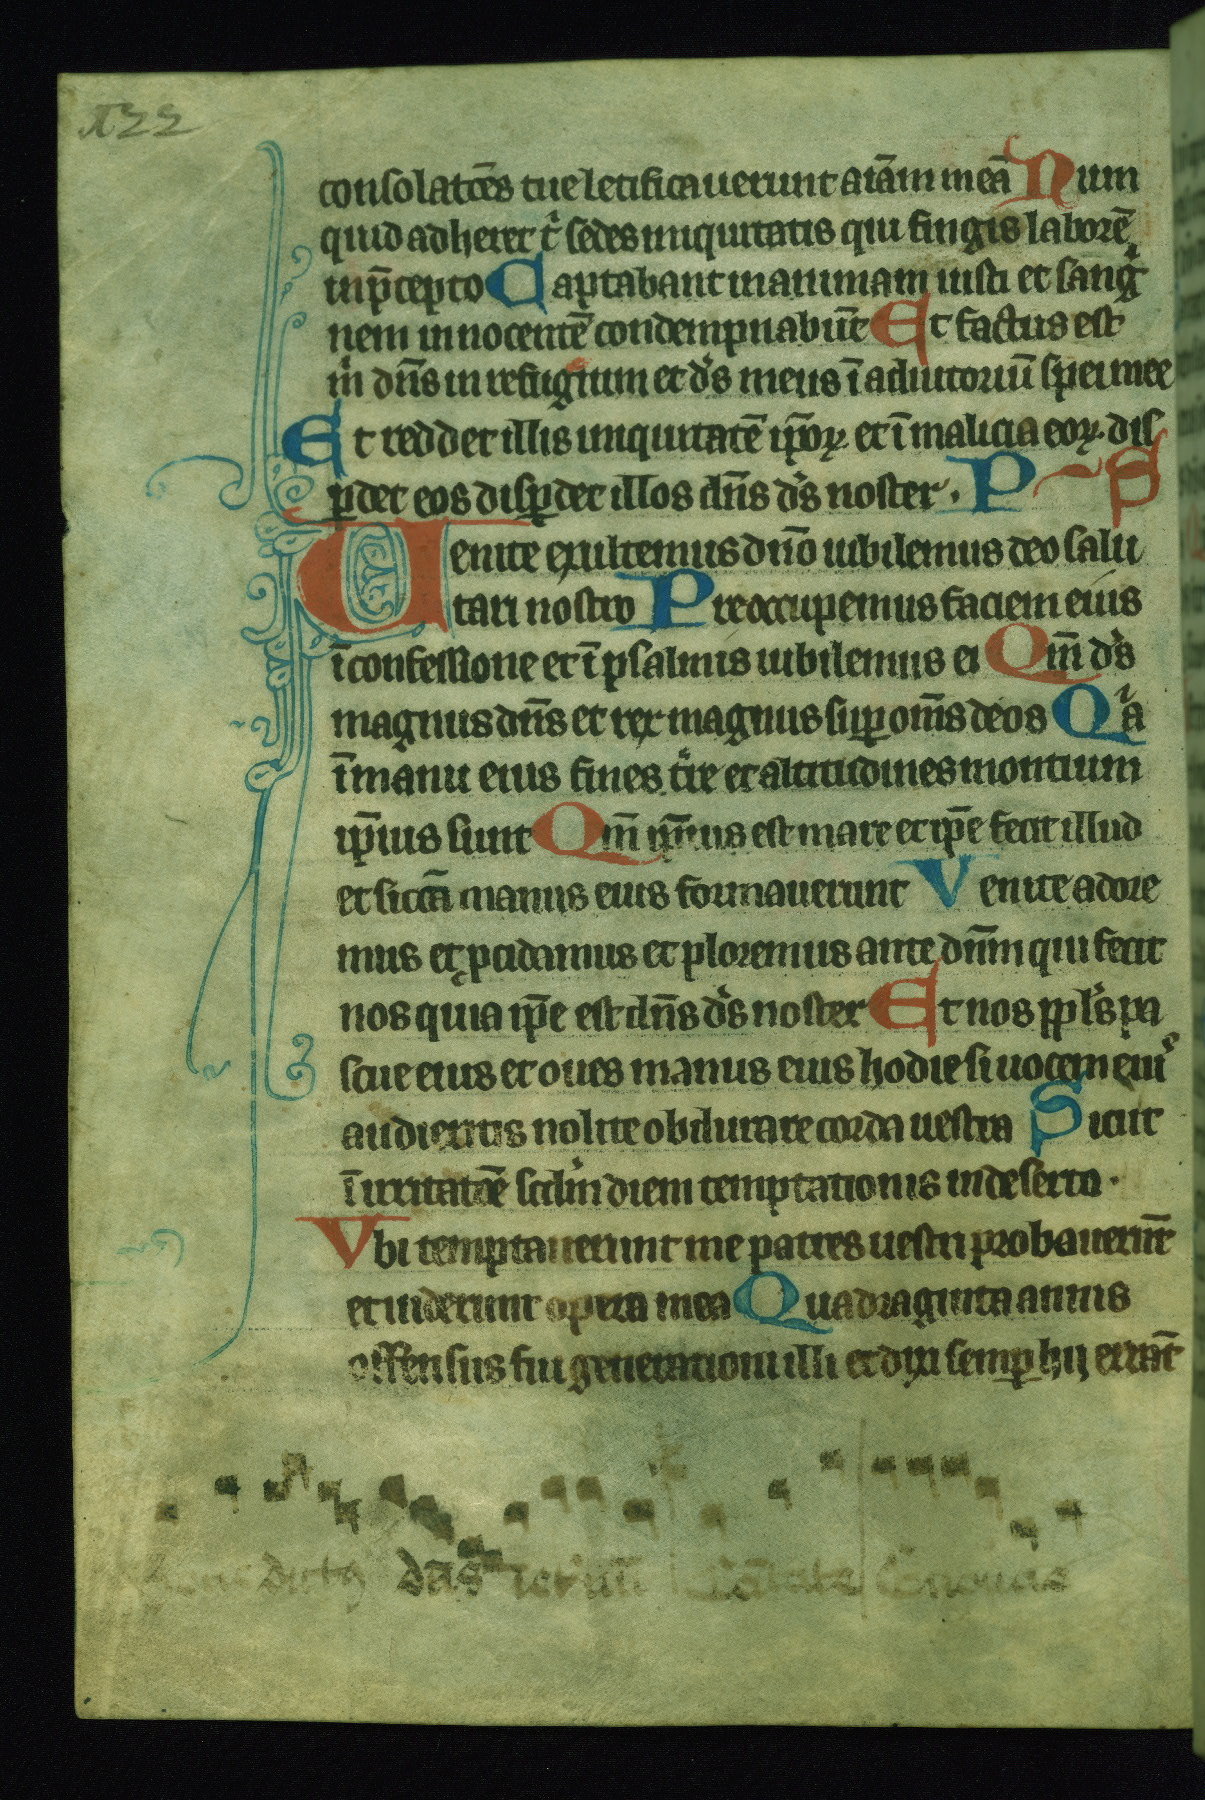 122
consolatōēs tue letificauerunt aīam meā Num
quid adheret t̄ sedes iniquitatis qui fingis laborē
in p̄cepto Captabant in animam iusti et sangͥ
nem innocentē condempnabūt Et factus est
m̊ dn̄s in refugium et ds̄ meus ī adiutoriū spei mee
Et reddet illis iniquitatē ip̄oꝝ et ī malicia eoꝝ dis
ꝑdet eos disꝑdet illos dn̄s ds̄ noster. P S
Uenite exultemus dn̄o iubilemus deo salu
tari nostro Preoccupemus faciem eius
ī confessione et ī psalmis iubilemus ei Qm̄ ds̄
magnus dn̄s et rex magnus suꝑ om̄s deos Qͥa
ī manu eius fines t̄re et altitudines montium
ip̄ius sunt Qm̄ ip̄ius est mare et ip̄e fecit illud
et siccā manus eius formauerunt Venite adore
mus et p̱cidamus et ploremus ante dn̄m qui fecit
nos quia ip̄e est dn̄s ds̄ noster Et nos ppl̄s pa
scue eius et oues manus eius hodie si uocem eiuˢ
audieritis nolite obdurare corda uestra Sicut
ī irritatōē scdm̄ diem temptationis in deserto.
Vbi temptauerunt me patres uestri probauerūt
et uiderunt opera mea Quadraginta annis
offensus fui generationi illi et dixi semꝑ hij errāt
dn̄s